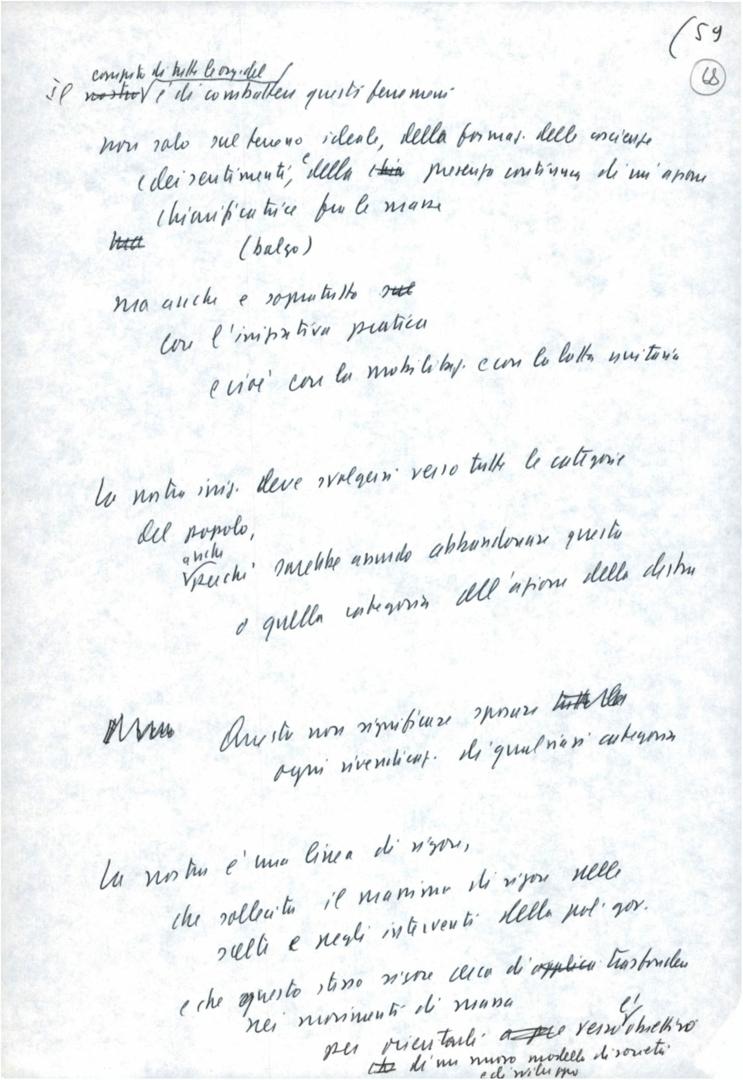 (59
68
compito di tutte le org. del
il nostro è di combattere questi fenomeni
non solo sul terreno ideale, della formaz. delle coscienze
(dei sentimenti, e della presenza continua di un'azione
chiarificatrice fra le masse
ma anche e sopratutto sul
con l'iniziativa pratica
e cioè con la mobilitaz. e con la lotta unitaria
La nostra iniz. deve svolgersi verso tutte le categorie
del popolo,
anche
perché sarebbe assurdo abbandonare questa
o quella categoria all'azione della destra
Questo non significa sposare tutte le
ogni rivendicaz. di qualsiasi categoria
La nostra è una linea di rigore,
che sollecita il massimo di rigore nelle
scelte e negli interventi della pol. gov.
e che questo stesso rigore cerca di applica trasfonder
nei movimenti di massa
per orientarli verso l'obiettivo
di un nuovo modello di società
e di sviluppo